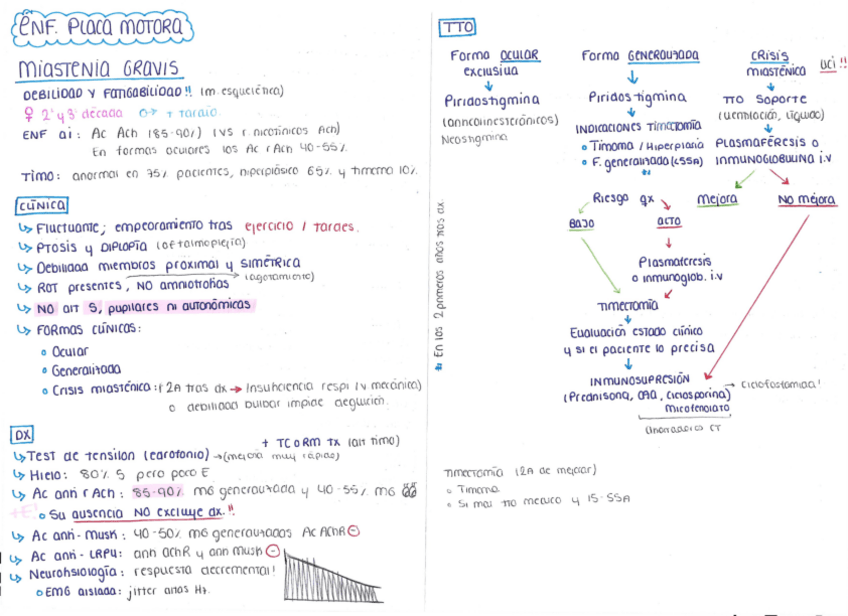 ENF. PLACA MOTORA
MIASTENIA GRAVIS
DEBILIDAD Y FATIGABILIDAD!! (m. esquelética)
♀ 2ª y 3ª década
ENF ai: Ac Ach (85-90%) (VS r. nicotínicos Ach)
En formas oculares los Ac rAch 40-55%.
TIMO: anormal en 75% pacientes, hiperplásico 65% y timoma 10%.
CLÍNICA
↳ Fluctuante; empeoramiento tras ejercicio / tardes.
↳ PTOSIS y DIPLOPÍA (oftalmoplejia)
↳ Debilidad miembros proximal y SIMÉTRICA
↳ ROT presentes, NO amiotrofias (agotamiento)
↳ NO alt S, pupilares ni autonómicas
↳ FORMAS CLÍNICAS:
o Ocular
o Generalizada
o Crisis miasténica: (2A tras dx → Insuficiencia respi (v mecánica)
o debilidad bulbar impide deglución.
DX
+ TC o RM TX (alt timo)
↳ TEST de tensilon (edrofonio) → (mejoría muy rápida)
↳ Hielo: 80% S pero poco E
↳ Ac anti rAch: 85-90% MG generalizada y 40-55% MG
+E!
o Su ausencia NO excluye dx.!!
↳ Ac anti-Musk: 40-50% MG generalizadas Ac AChR ⊖
↳ Ac anti-LRP4: anti achR y anti musk ⊖
↳ Neurofisiología: respuesta decremental!
o EMG aislada: jitter altas Hz.
TTO
Forma OCULAR exclusiva
↓
Piridostigmina
(anticolinesterásicos)
Neostigmina
Forma GENERALIZADA
↓
Piridostigmina
↓
INDICACIONES TIMECTOMÍA
o Timoma / Hiperplasia
o F. generalizada (<55A)
Riesgo qx
BAJO
ALTO
↓
Plasmaféresis
o inmunoglob. i.v
TIMECTOMÍA
↓
Evaluación estado clínico
y si el paciente lo precisa
↓
INMUNOSUPRESIÓN
(Prednisona, AZA, Ciclosporina) → Ciclofosfamida!
Micofenolato
Ahorradores CT
CRISIS miasténica
UCI!!
↓
TTO SOPORTE
(ventilación, líquido)
↓
PLASMAFÉRESIS o
INMUNOGLOBULINA i.v
Mejora
No mejora
* En los 2 primeros años tras dx.
Timectomía (2A de mejorar)
o Timoma
o Si mal tto médico y 15-55A